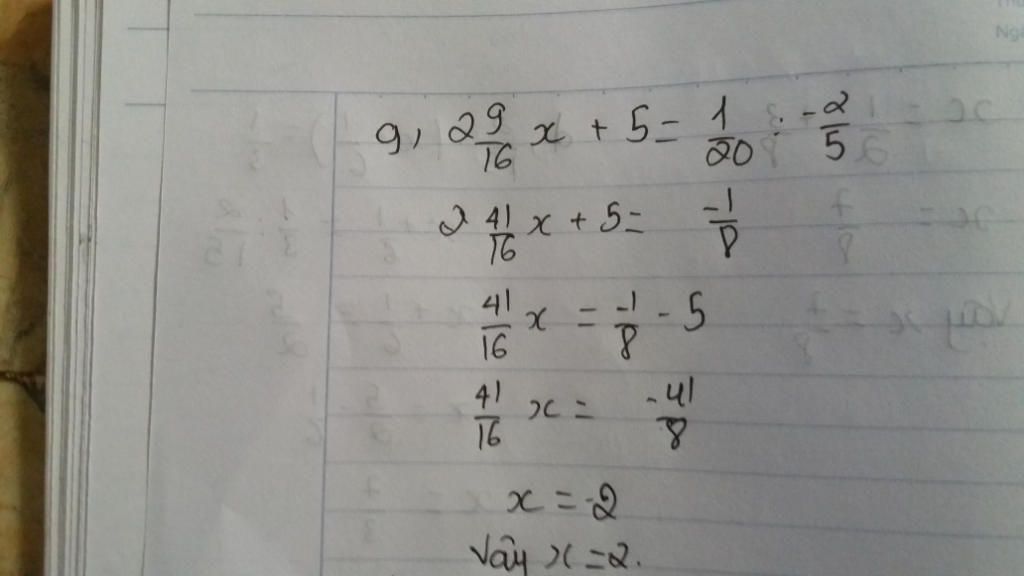 g, 2 9/16 x + 5 = 1/20 : -2/5
2 41/16 x + 5 = -1/8
41/16 x = -1/8 - 5
41/16 x = -41/8
x = -2
Vậy x = 2.